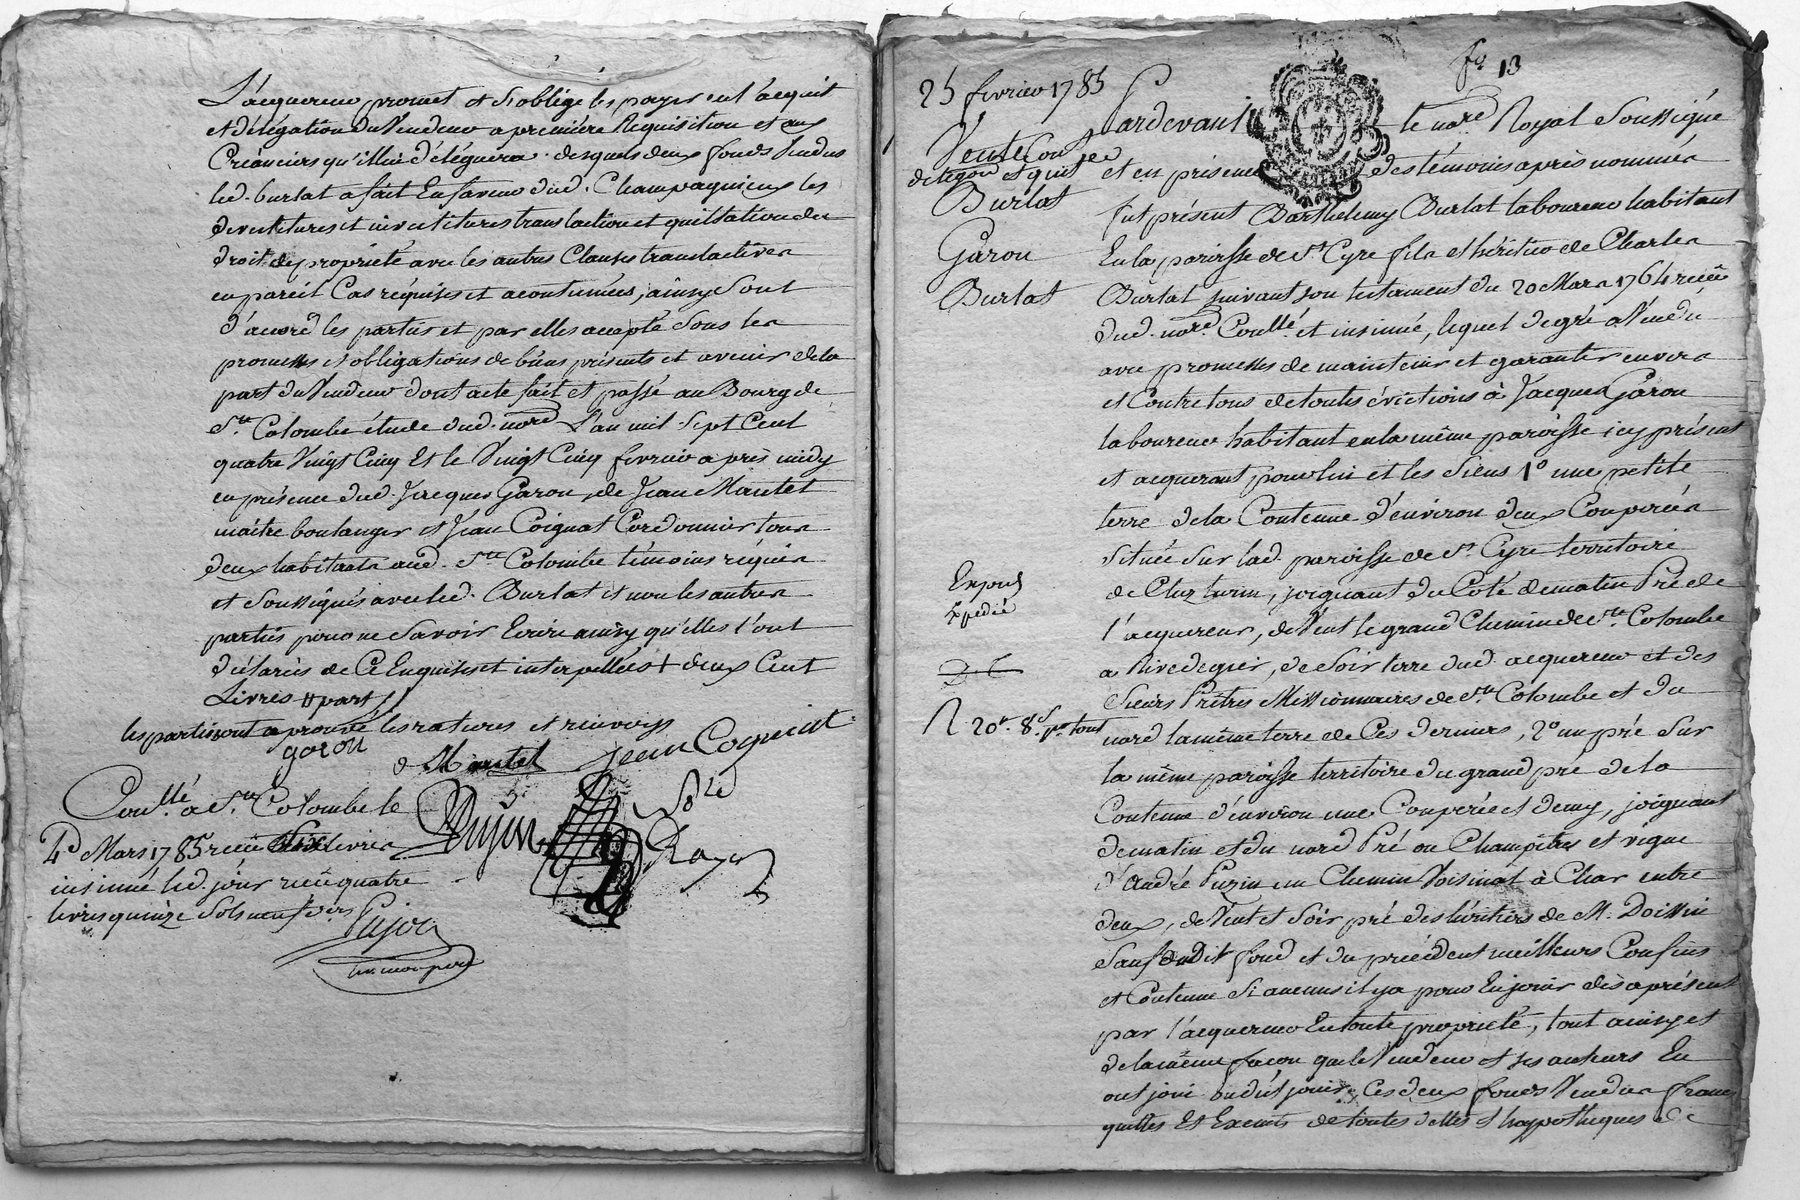 L'acquereur promet et s'oblige les payer en l'acquit
et délégation du Vendeur a première Requisition et aux
Créanciers qu'il lui déléguera. desquels deux fonds Vendus
led. Burlat a fait En faveur dud. Champagnieux les
devetitures et investitures translaction et quittation du
droit de propriété avec les autres Clauses translactives
en pareil Cas requises et acoutumées, ainsy Sont
d'accord les parties et par elles accepté Sous les
promesses et obligations de biens présents et avenir de la
part du Vendeur dont acte fait et passé au Bourg de
Ste Colombe étude dud. nore L'an mil Sept Cent
quatre Vingt Cinq Et le Vingt Cinq fevrier après midy
en présence dud. Jacques Garou, de Jean Mantel
maitre boulanger et Jean Coignat Cordonnier tous
deux habitants aud. Ste Colombe témoins requis
et Soussignés avec led. Burlat et non les autres
parties pour ne Savoir Ecrire ainsy qu'elles l'ont
déclarés de Ce Enquises et interpellées + deux Cent
Livres # part
les parties ont aprouvé les ratures et renvoys
garou
Mantel Jean Cogniat
Conllé a Ste Colombe le
4 Mars 1785 recu livres
insinué led. jour recu quatre
livres quinze Sols neuf drs
Pujon
Pujon
nre
Royal
fo 13
25 fevrier 1785
Vente Cont.
delegon et quit
Burlat
Garou
Burlat
Expedié
20 8s pr tout
Pardevant le nore Royal Soussigné
et en présence des témoins après nommés
fut présent Barthelemy Burlat laboureur habitant
En la paroisse de St Cyre fils et héritier de Charles
Burlat suivant son testament du 20 Mars 1764 recu
dud. nore Conllé et insinué, lequel de gré a Vendu
avec promesses de maintenir et garantir envers
et Contre tous de toutes évictions à Jacques Garou
laboureur habitant en la même paroisse icy présent
et acquerant pour lui et les Siens 1o une petite
terre de la Contenue d'environ deux Couperées
située Sur lad. paroisse de St Cyre territoire
de Cluzturin, joignant du Coté de matin Pré de
l'acquereur, de Vent le grand Chemin de Ste Colombe
a Rivedegier, de Soir terre dud. acquereur et des
Sieurs Prêtres Missionnaires de Ste Colombe et du
nord la même terre de Ces derniers, 2o un pré Sur
la même paroisse territoire du grand pré de la
Contenue d'environ une Couperée et demy, joignant
de matin et du nord Pré ou Champêtres et vigne
d'André Puzin un Chemin Voisinal à Char entre
deux, de Vent et Soir pré des héritiers de M. Doissin
Sauf dudit fond et du précédent meilleurs Confins
et Contenue Si aucuns il y a pour En jouir dès aprésent
par l'acquereur En toute propriété, tout ainsy et
de la même façon que le Vendeur et ses auteurs En
ont joui ou dut jouir, Ces deux fonds Vendus francs
quittes Et Exempts de toutes dettes et hypotheques